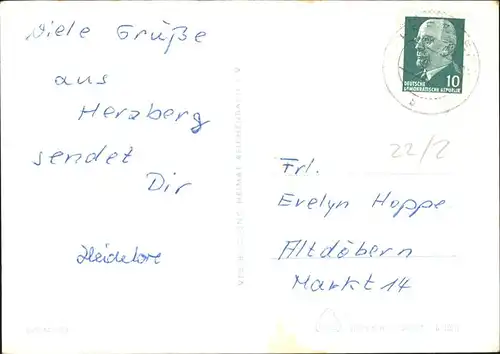 Viele Grüße
aus
Herzberg
sendet
Dir
Heidelore
10
DEUTSCHE
DEMOKRATISCHE REPUBLIK
22/2
Frl.
Evelyn Hoppe
Altdöbern
Markt 14